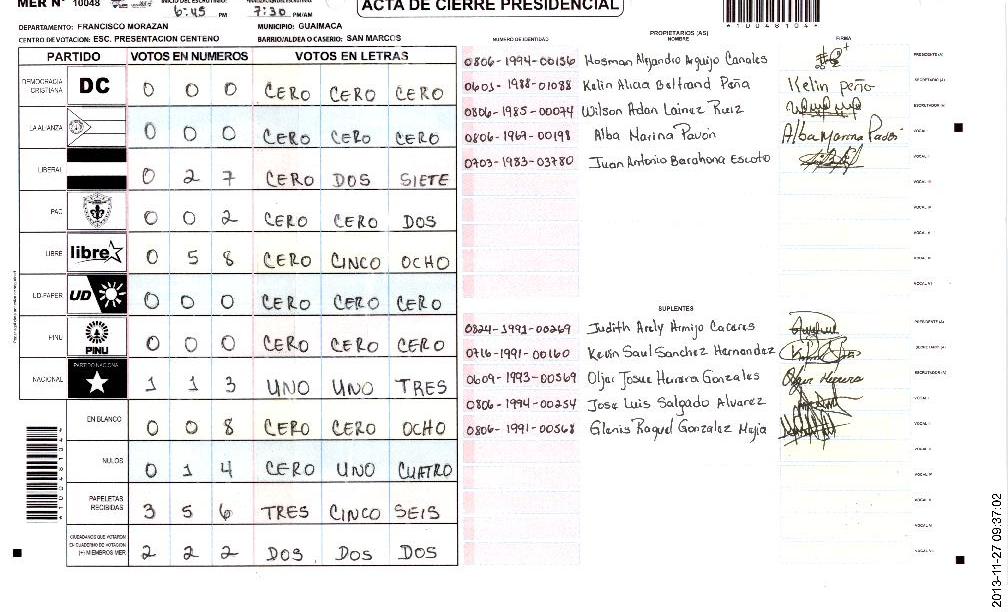 MER N° 10048
ACTA DE CIERRE PRESIDENCIAL
6:45 PM 7:30 PM/AM
DEPARTAMENTO: FRANCISCO MORAZAN MUNICIPIO: GUAIMACA
CENTRO DE VOTACION: ESC. PRESENTACION CENTENO BARRIO/ALDEA O CASERIO: SAN MARCOS
*10048104*
PARTIDO VOTOS EN NUMEROS VOTOS EN LETRAS
DEMOCRACIA CRISTIANA DC 0 0 0 CERO CERO CERO
LA ALIANZA 0 0 0 CERO CERO CERO
LIBERAL 0 2 7 CERO DOS SIETE
PAC 0 0 2 CERO CERO DOS
LIBRE libre 0 5 8 CERO CINCO OCHO
UD-FAPER UD 0 0 0 CERO CERO CERO
PINU PINU 0 0 0 CERO CERO CERO
NACIONAL PARTIDO NACIONAL 1 1 3 UNO UNO TRES
EN BLANCO 0 0 8 CERO CERO OCHO
NULOS 0 1 4 CERO UNO CUATRO
PAPELETAS RECIBIDAS 3 5 6 TRES CINCO SEIS
CIUDADANOS QUE VOTARON EN CUADERNO DE VOTACION (+) MIEMBROS MER 2 2 2 DOS DOS DOS
PROPIETARIOS (AS)
NUMERO DE IDENTIDAD NOMBRE FIRMA
0806-1994-00156 Hosman Alejandro Arguijo Canales PRESIDENTE (A)
0603-1988-01088 Kelin Alicia Beltrand Peña Kelin peño SECRETARIO (A)
0806-1985-00074 Wilson Adan Lainez Ruiz ESCRUTADOR (A)
0806-1969-00198 Alba Marina Pavón Alba Marina Pavón VOCAL I
0703-1983-03780 Juan Antonio Barahona Escoto VOCAL II
VOCAL III
VOCAL IV
VOCAL V
VOCAL VI
VOCAL VII
SUPLENTES
0824-1991-00269 Judith Arely Armijo Caceres PRESIDENTE (A)
0716-1991-00160 Kevin Saul Sanchez Hernandez SECRETARIO (A)
0609-1993-00569 Oljar Josue Herrera Gonzales ESCRUTADOR (A)
0806-1994-00254 Jose Luis Salgado Alvarez VOCAL I
0806-1991-00568 Glenis Raquel Gonzalez Mejia VOCAL II
VOCAL III
VOCAL IV
VOCAL V
VOCAL VI
VOCAL VII
2013-11-27 09:37:02